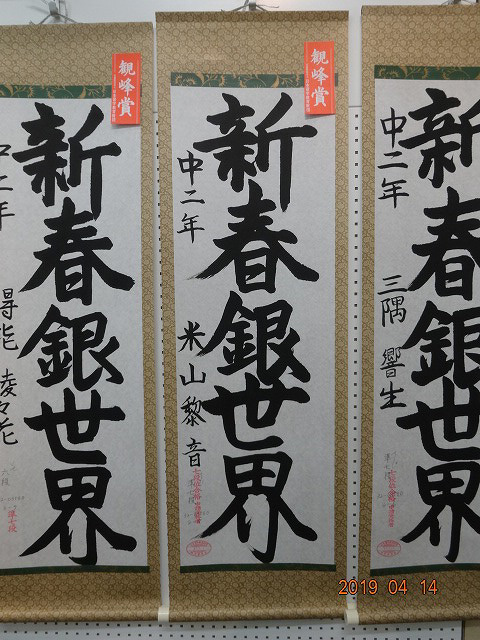 観峰賞
新春銀世界
中二年
得能 凌々花
観峰賞
新春銀世界
中二年
米山黎音
新春銀世界
中二年
三隅 響生
2019 04 14